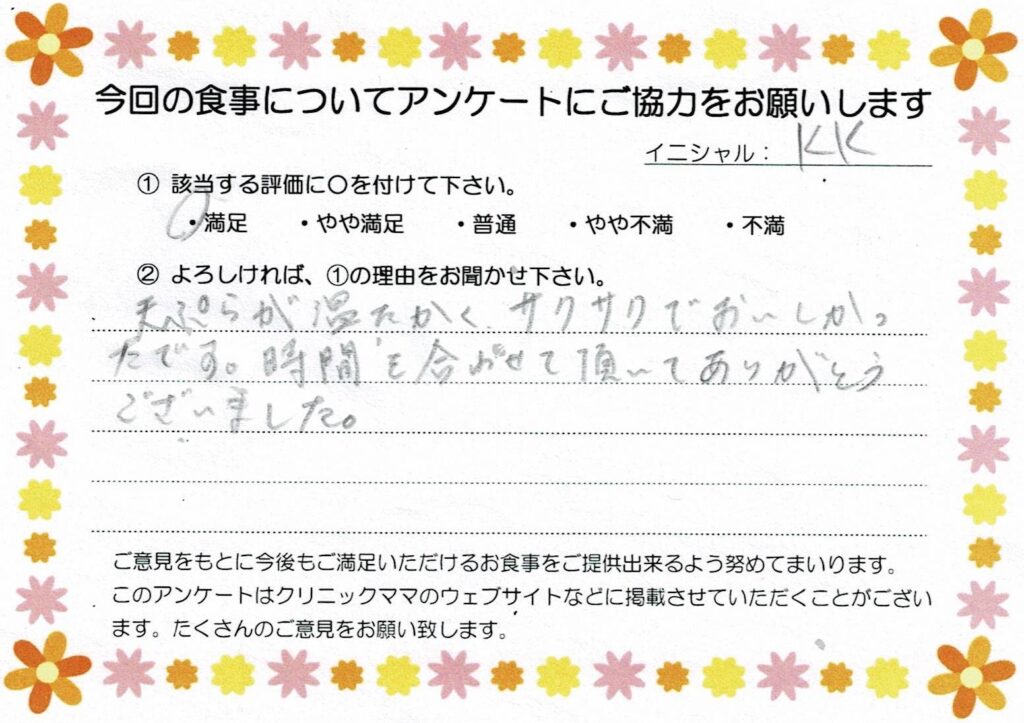 今回の食事についてアンケートにご協力をお願いします
イニシャル： KK
① 該当する評価に〇を付けて下さい。
・満足 ・やや満足 ・普通 ・やや不満 ・不満
② よろしければ、①の理由をお聞かせ下さい。
天ぷらが温たかく、サクサクでおいしかっ
たです。時間を合わせて頂いてありがとう
ございました。
ご意見をもとに今後もご満足いただけるお食事をご提供出来るよう努めてまいります。
このアンケートはクリニックママのウェブサイトなどに掲載させていただくことがござい
ます。たくさんのご意見をお願い致します。